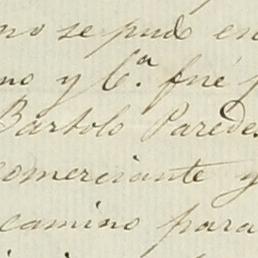 no se pudo en
no y Cª. fué
Bartolo Paredes
comerciante y
camino para